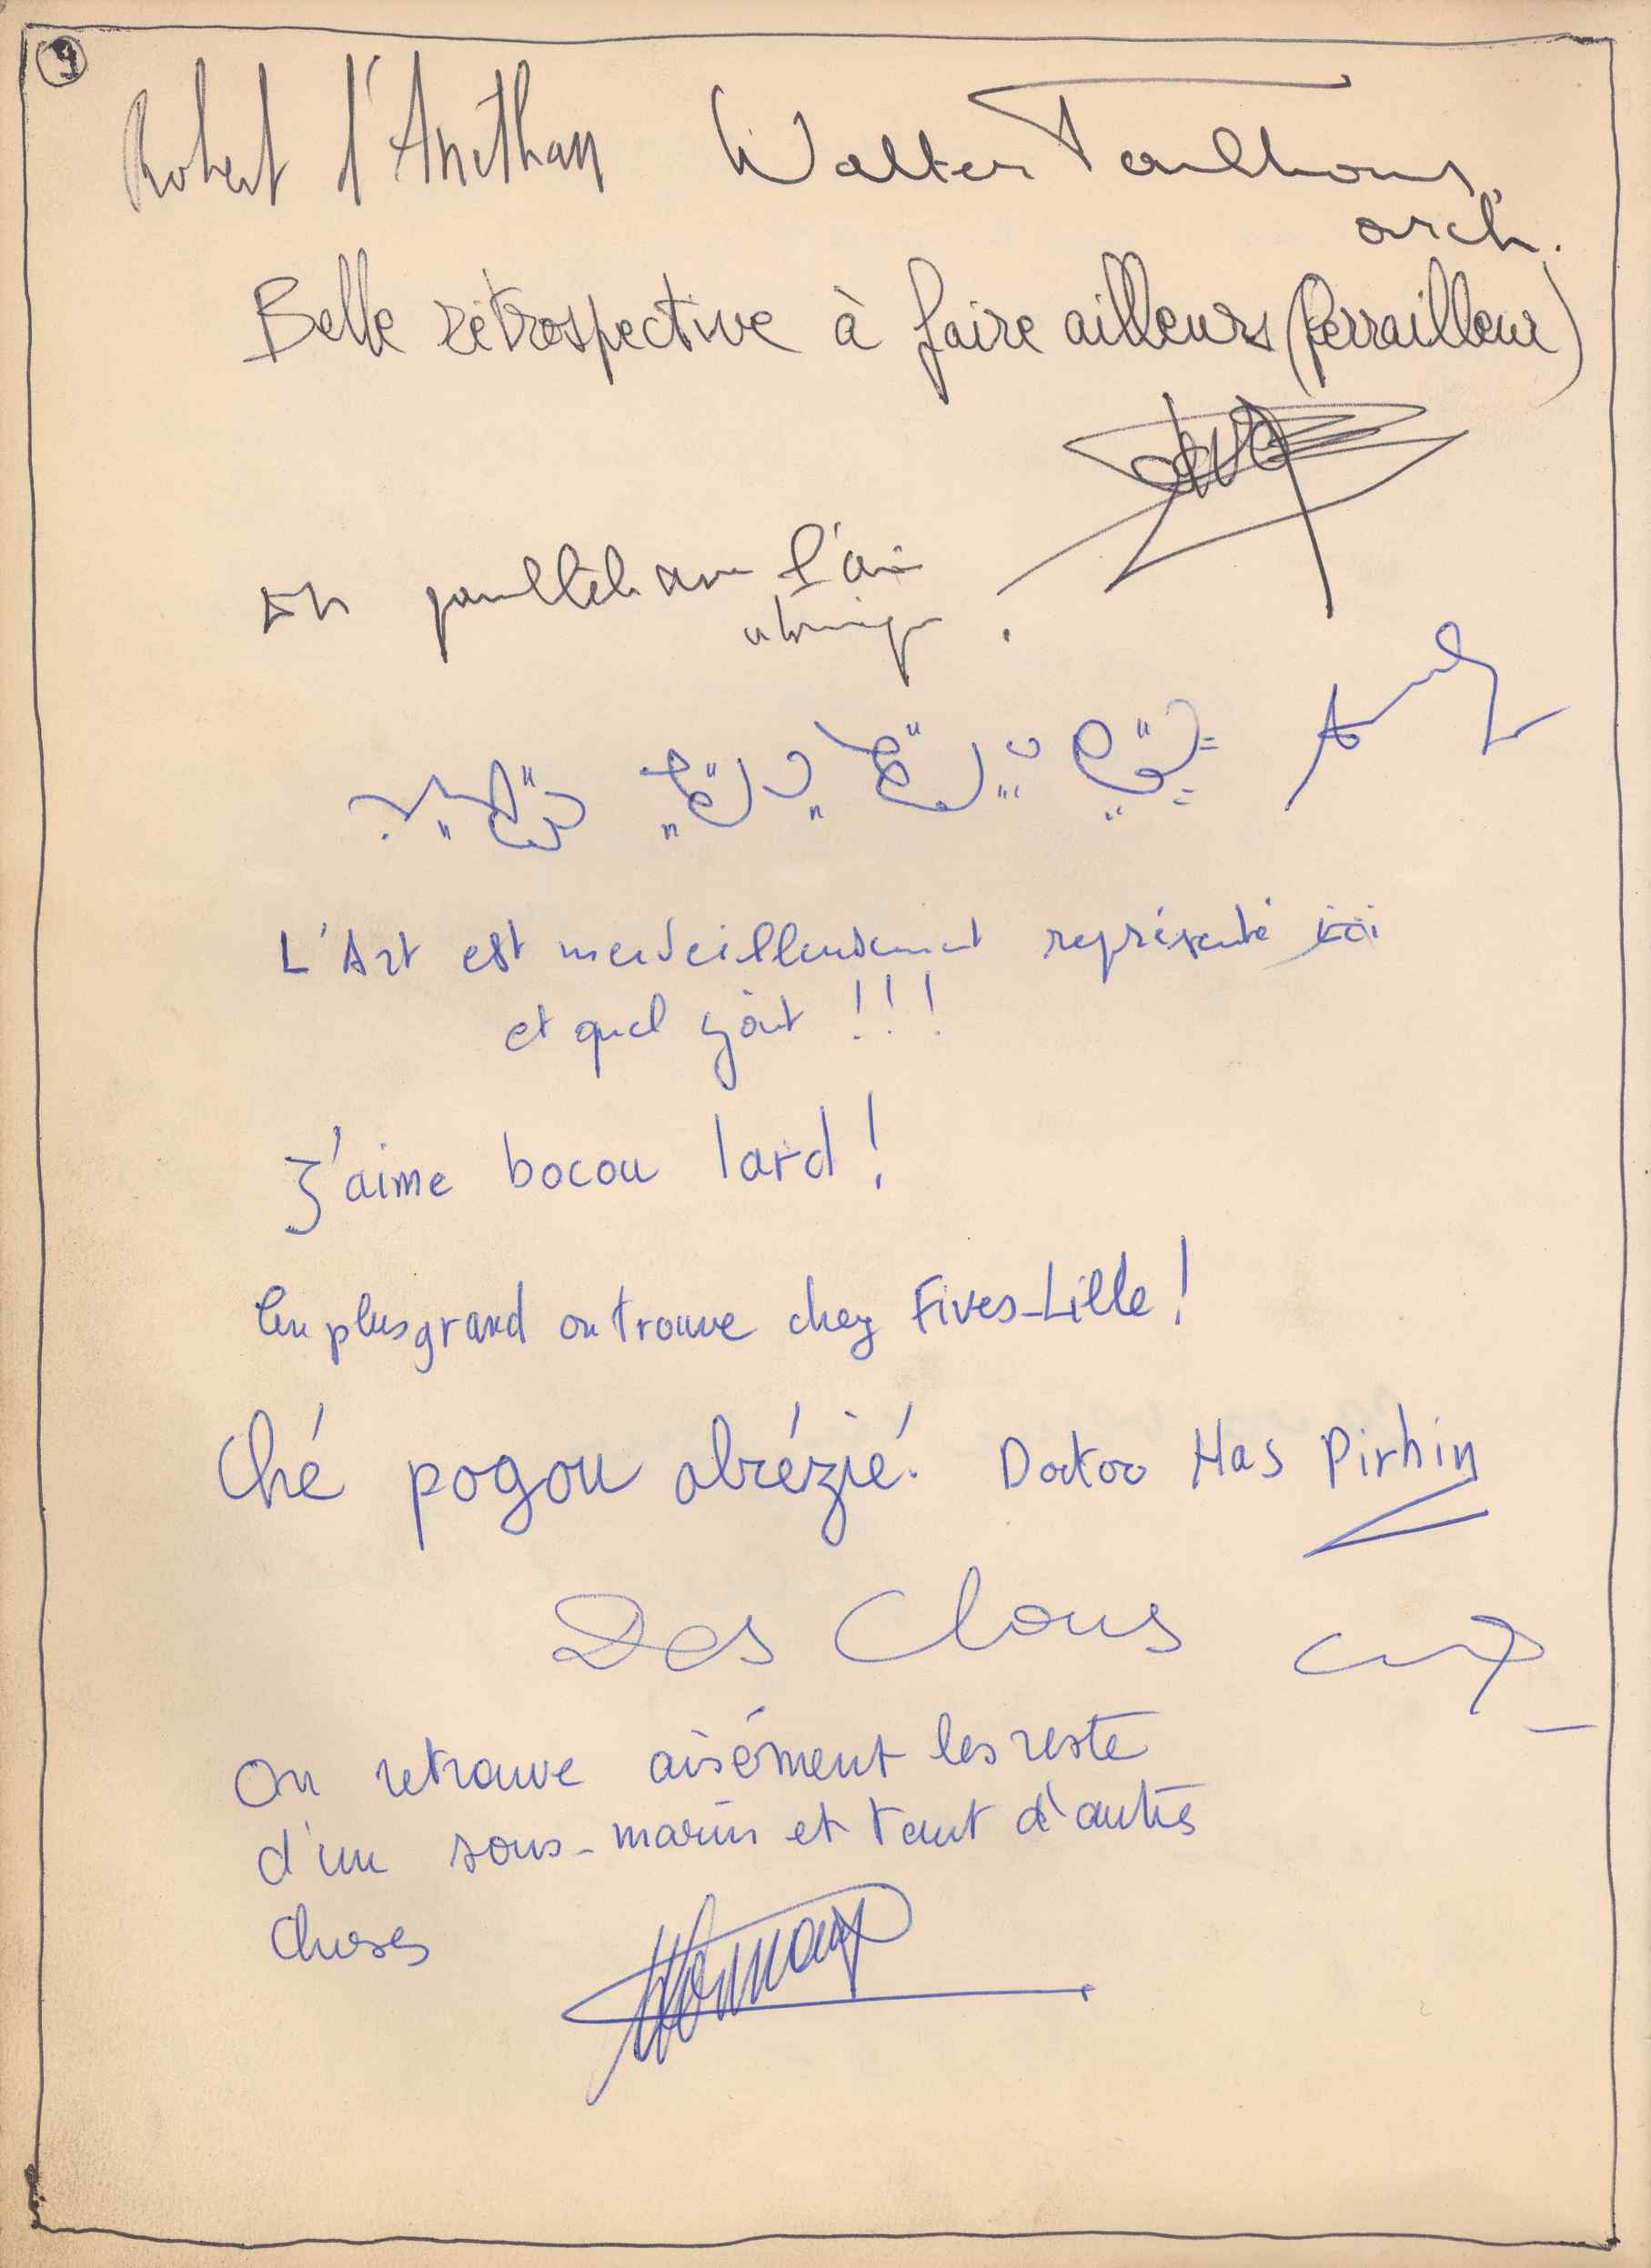 9
Robert d'Anethan Walter
arch.
Belle rétrospective à faire ailleurs (ferrailleur)
En parallèle avec l'air
L'Art est merveilleusement représenté ici
et quel goût !!!
J'aime bocou lard !
En plus grand on trouve chez Fives-Lille !
Ché pogou abrézié! Doktoo Has Pirhin
Des Clous
On retrouve aisément les reste
d'un sous-marin et tant d'autres
choses